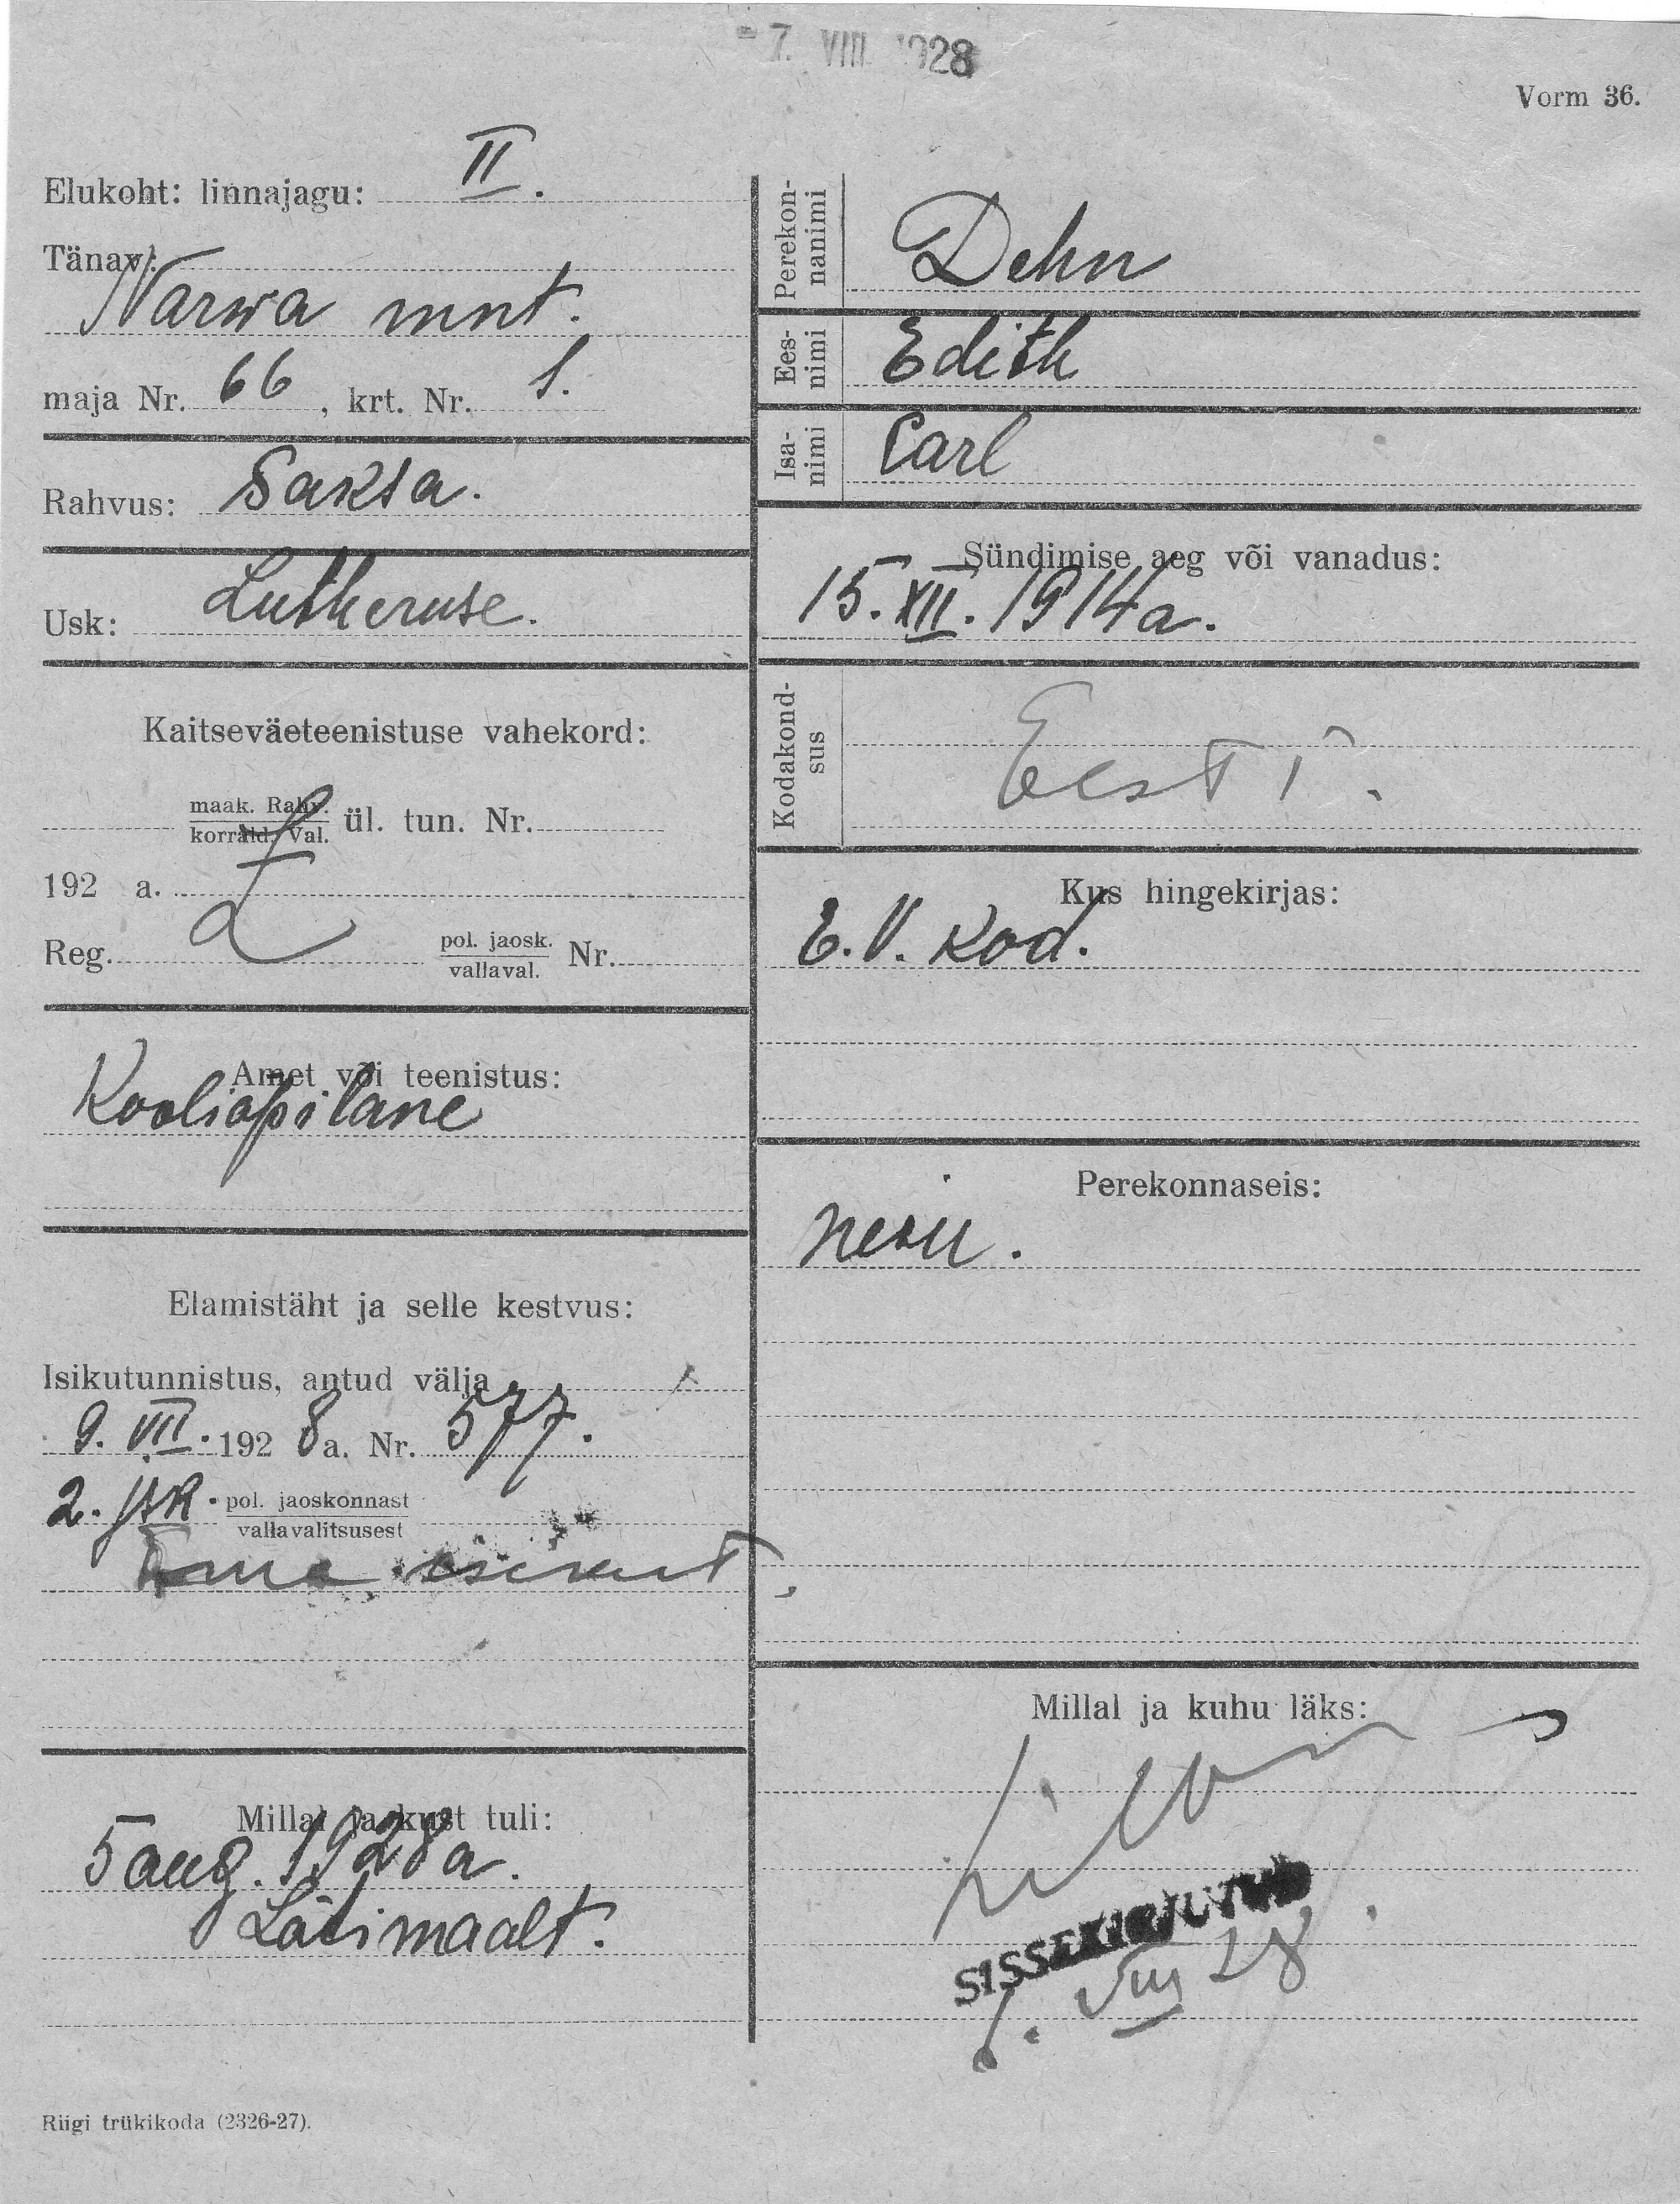 - 7. VIII 1928
Vorm 36.
Elukoht: linnajagu: II.
Tänav:
Narwa mnt.
maja Nr. 66, krt. Nr. 1.
Rahvus: Saksa.
Usk: Lutheruse.
Kaitseväeteenistuse vahekord:
maak. Rahv.
korrald. Val. ül. tun. Nr.
192 a.
Reg. pol. jaosk. Nr.
vallaval.
Amet või teenistus:
Kooliõpilane
Elamistäht ja selle kestvus:
Isikutunnistus, antud välja
9. VII. 1928 a. Nr. 577.
2. jsk. pol. jaoskonnast
vallavalitsusest
Millal ja kust tuli:
5 aug. 1928 a.
Lätimaalt.
Riigi trükikoda (2326-27).
Perekon-
nanimi Dehn
Ees-
nimi Edith
Isa-
nimi Carl
Sündimise aeg või vanadus:
15. XII. 1914 a.
Kodakond-
sus Eesti.
Kus hingekirjas:
E. V. Kod.
Perekonnaseis:
neiu.
Millal ja kuhu läks:
SISSEKIRJUTUD
VIII 28